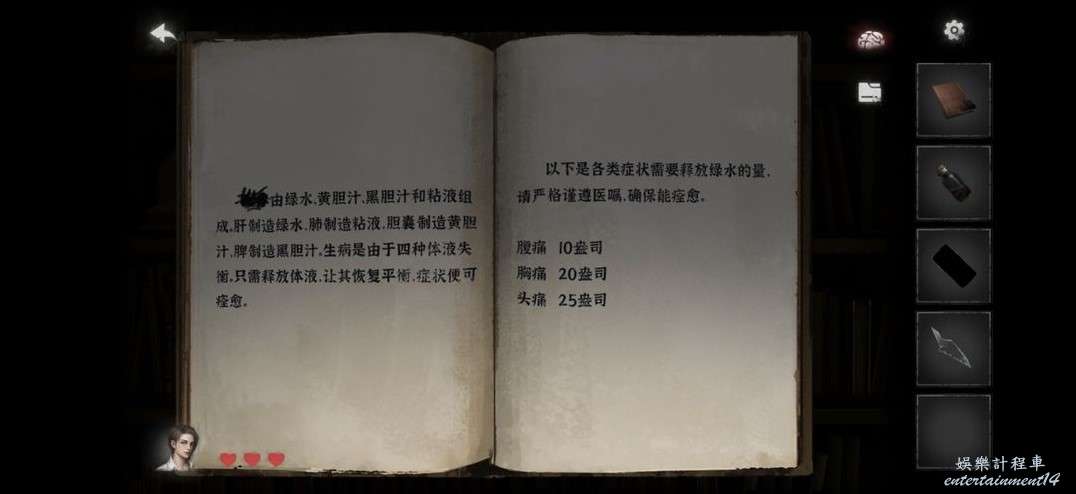 由绿水,黄胆汁,黑胆汁和粘液组
成,肝制造绿水,肺制造粘液,胆囊制造黄胆
汁,脾制造黑胆汁。生病是由于四种体液失
衡,只需释放体液,让其恢复平衡,症状便可
痊愈。
以下是各类症状需要释放绿水的量,
请严格谨遵医嘱,确保能痊愈。
腰痛 10盎司
胸痛 20盎司
头痛 25盎司
娛樂計程車
entertainment14